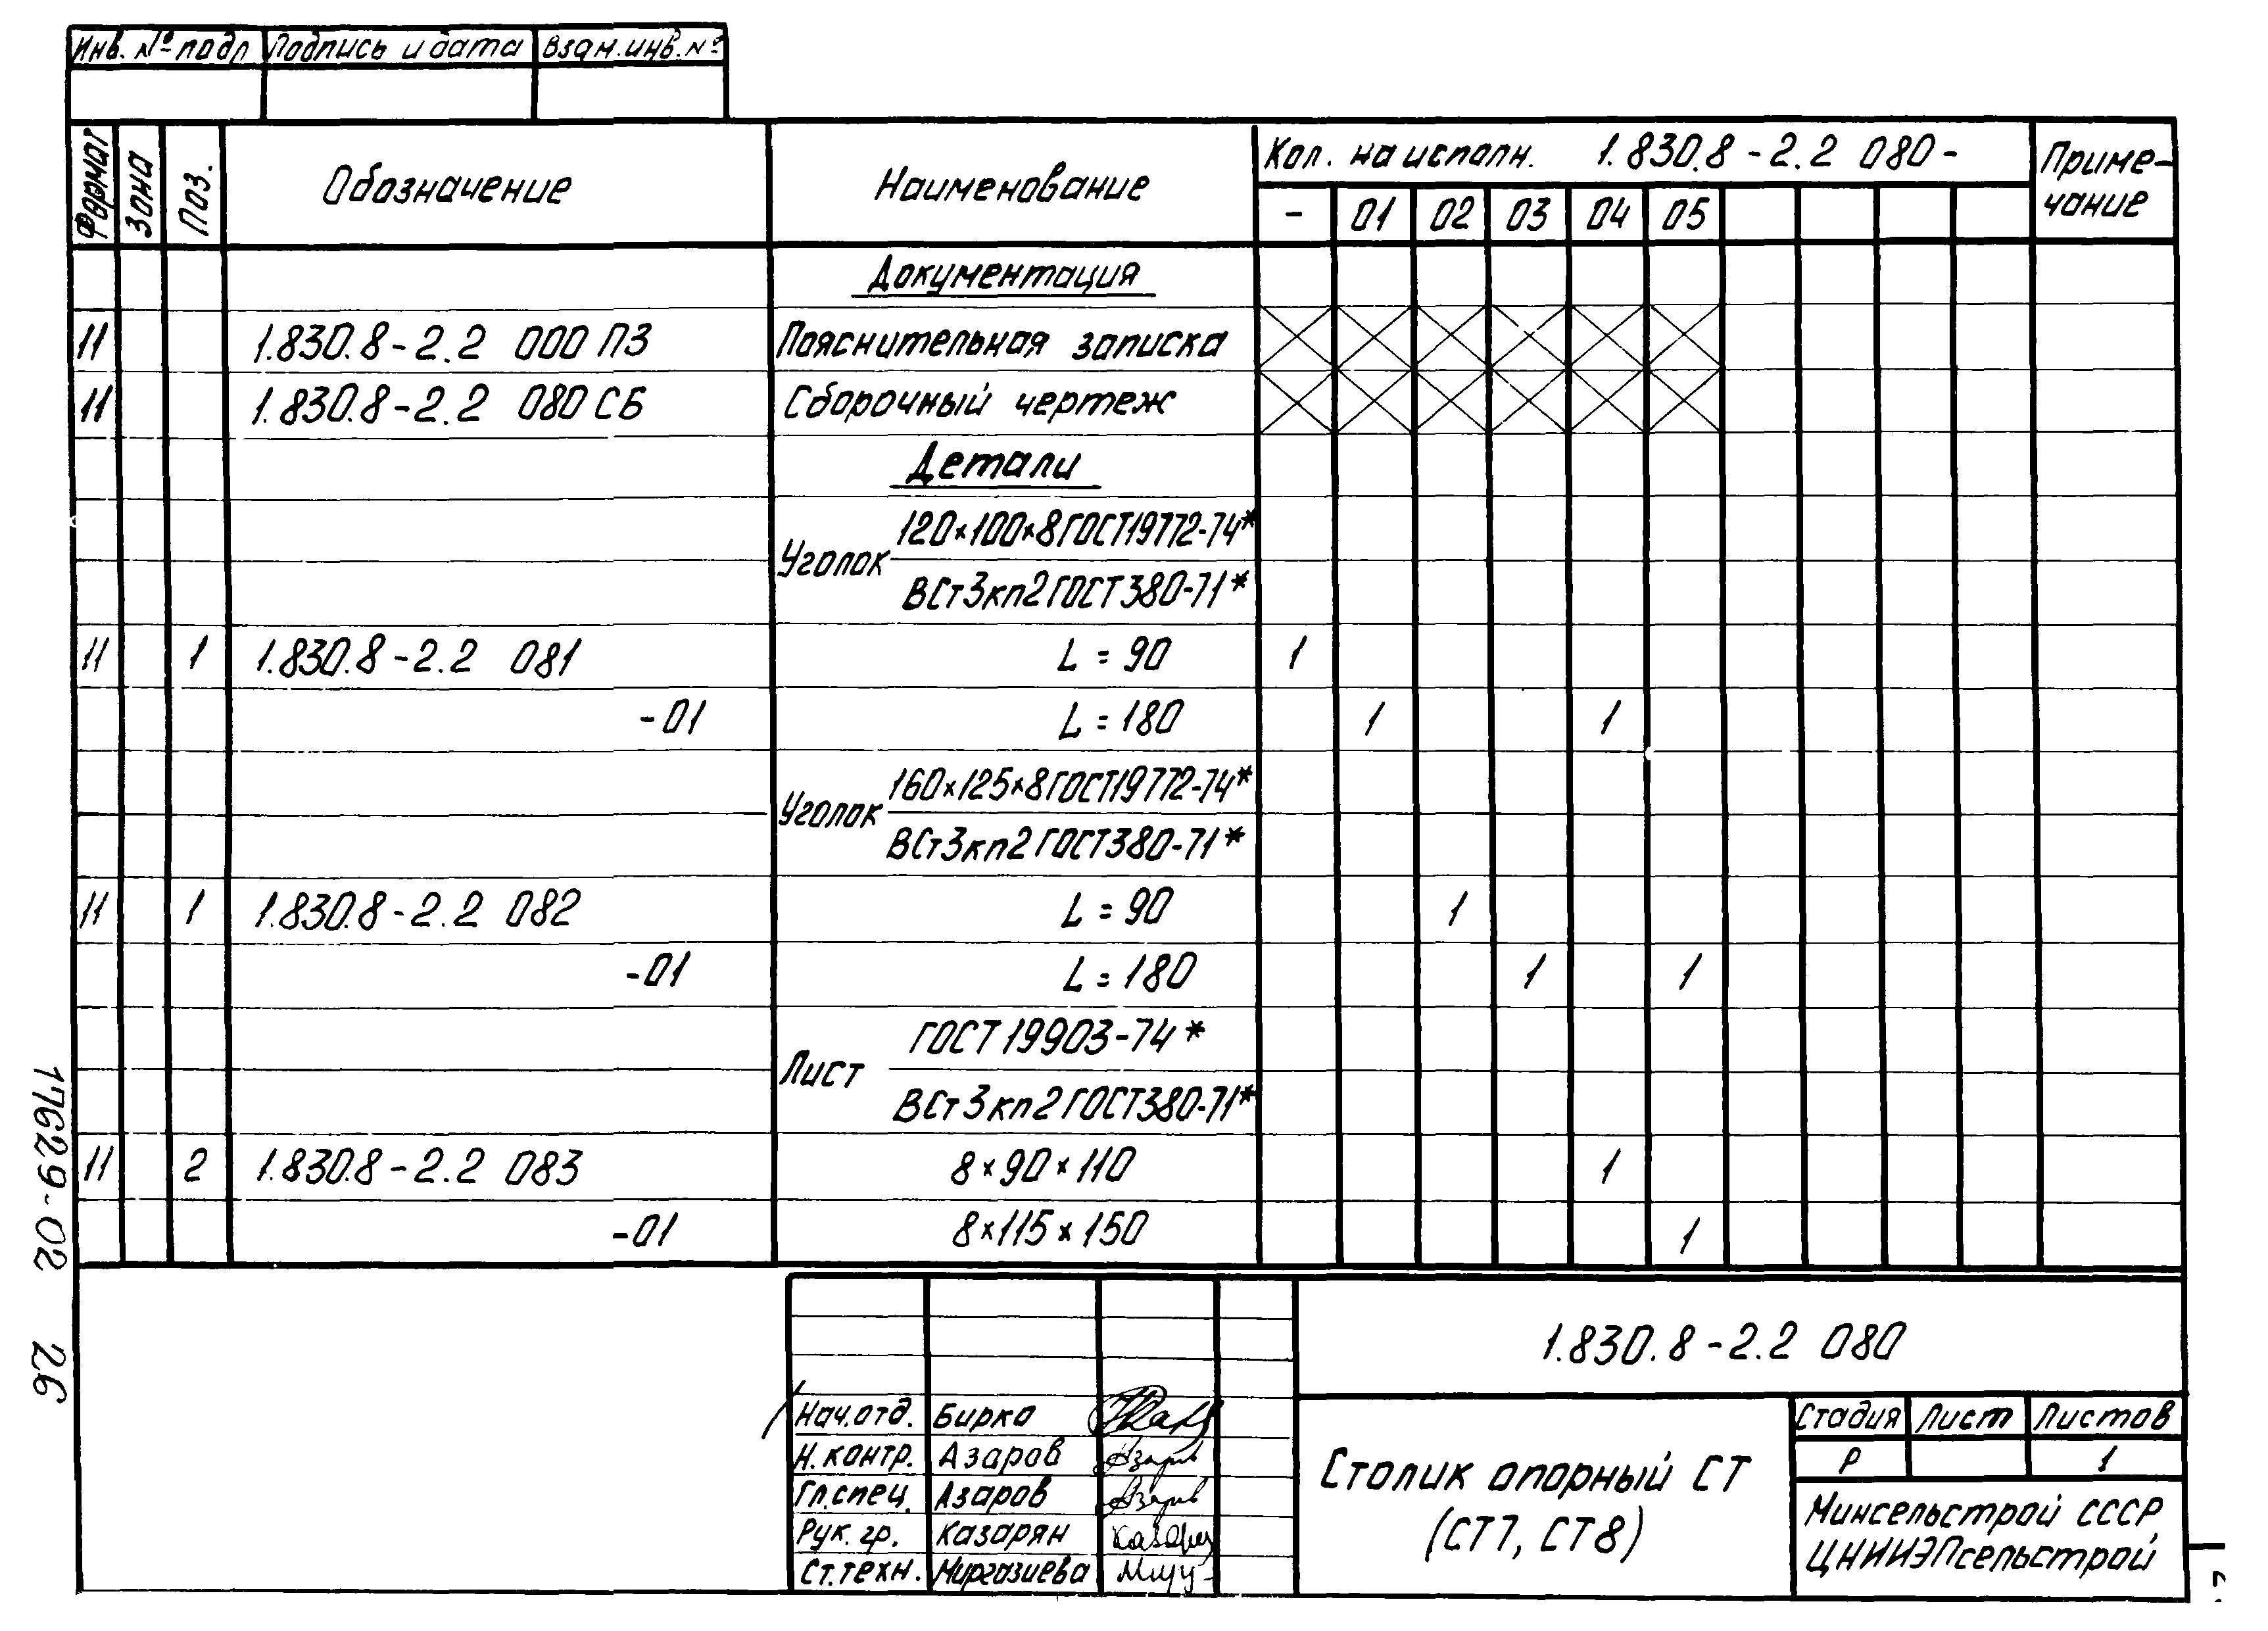 Инв. № подл Подпись и дата Взам. инв. №
Формат Зона Поз. Обозначение Наименование Кол. на исполн. 1.830.8-2.2 080- Приме-чание
- 01 02 03 04 05
Документация
11 1.830.8-2.2 000 ПЗ Пояснительная записка
11 1.830.8-2.2 080 СБ Сборочный чертеж
Детали
120×100×8 ГОСТ 19772-74*
Уголок
ВСт3кп2 ГОСТ 380-71*
11 1 1.830.8-2.2 081 L = 90 1
-01 L = 180 1 1
160×125×8 ГОСТ 19772-74*
Уголок
ВСт3кп2 ГОСТ 380-71*
11 1 1.830.8-2.2 082 L = 90 1
-01 L = 180 1 1
ГОСТ 19903-74*
Лист
ВСт3кп2 ГОСТ 380-71*
11 2 1.830.8-2.2 083 8×90×110 1
-01 8×115×150 1
17629-02 26
1.830.8-2.2 080
Нач.отд. Бирка
Н.контр. Азаров Азаров
Гл.спец. Азаров Азаров
Рук. гр. Казарян
Ст.техн. Миргазиева
Столик опорный СТ
(СТ7, СТ8)
Стадия Лист Листов
Р 1
Минсельстрой СССР
ЦНИИЭПсельстрой